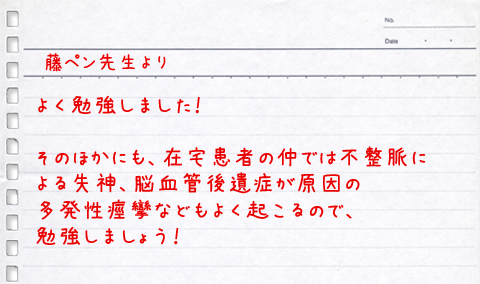 No.
Date
藤ペン先生より
よく勉強しました！
そのほかにも、在宅患者の仲では不整脈に
よる失神、脳血管後遺症が原因の
多発性痙攣などもよく起こるので、
勉強しましょう！